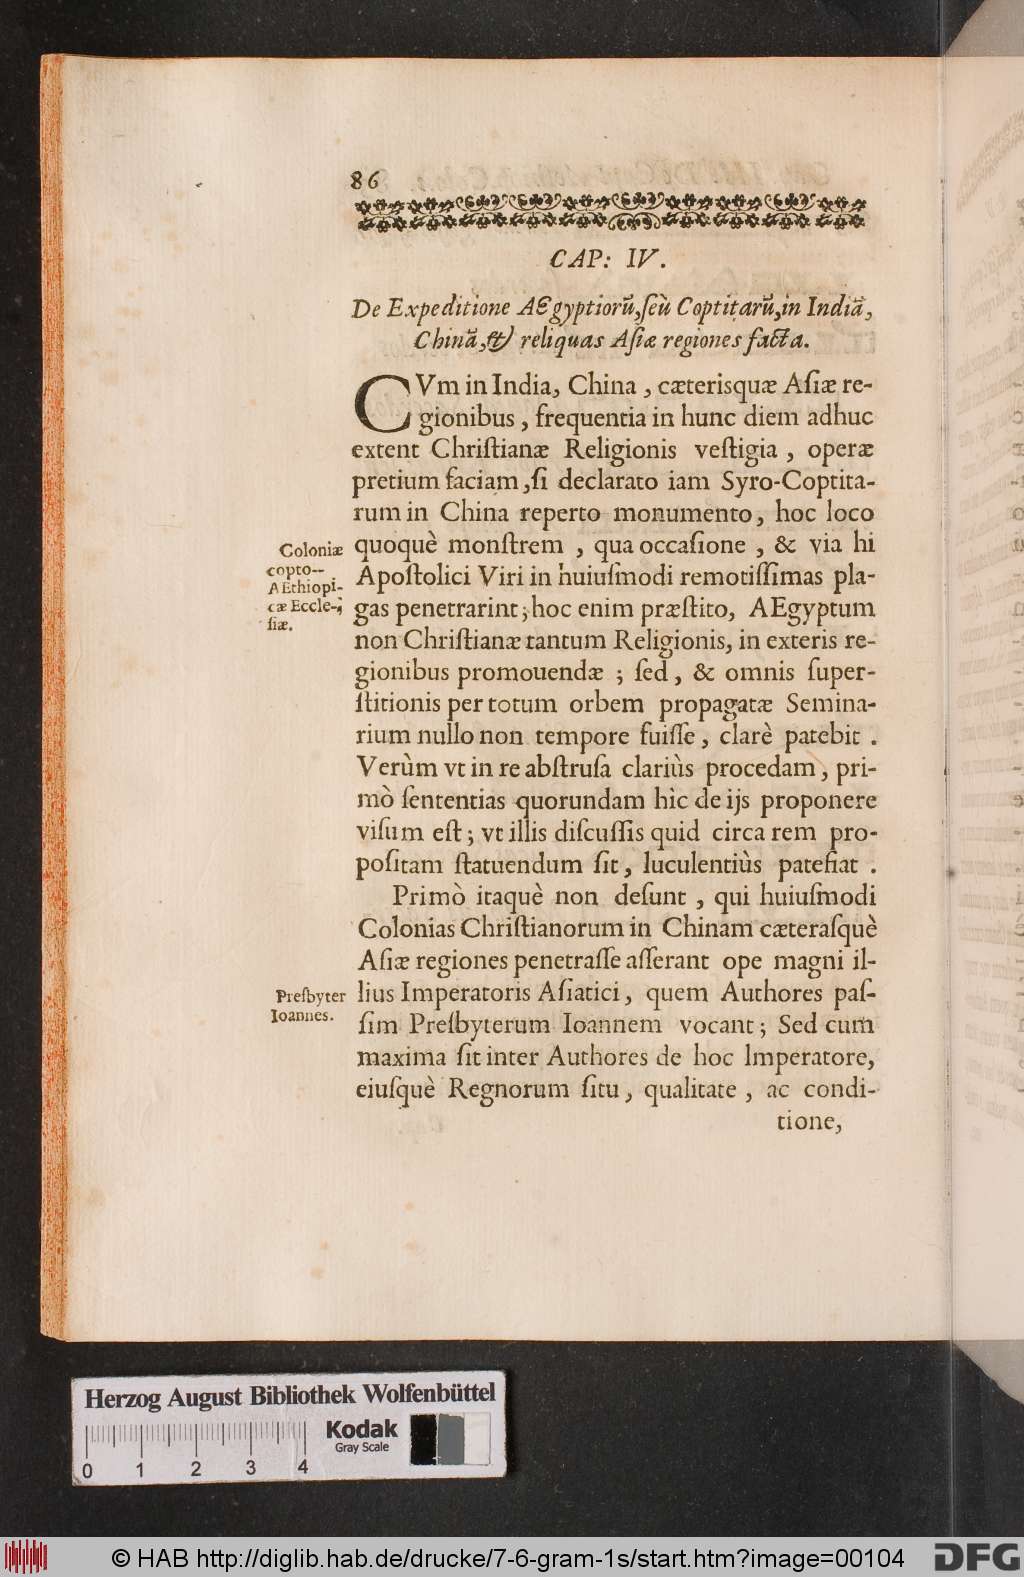 86
CAP: IV.
De Expeditione AEgyptiorũ,ſeù Coptitarũ,in Indiã,
Chinã,& reliquas Aſiæ regiones facta.
CVm in India, China , cæterisquæ Aſiæ re-
gionibus , frequentia in hunc diem adhuc
extent Chriſtianæ Religionis veſtigia , operæ
pretium faciam ,ſi declarato iam Syro-Coptita-
rum in China reperto monumento, hoc loco
quoquè monſtrem , qua occaſione , & via hi
Apoſtolici Viri in huiuſmodi remotiſſimas pla-
gas penetrarint ; hoc enim præſtito, AEgyptum
non Chriſtianæ tantum Religionis, in exteris re-
gionibus promouendæ ; ſed , & omnis ſuper-
ſtitionis per totum orbem propagatæ Semina-
rium nullo non tempore fuiſſe , clarè patebit .
Verùm vt in re abſtruſa clariùs procedam , pri-
mò ſententias quorundam hìc de ijs proponere
viſum eſt ; vt illis diſcuſſis quid circa rem pro-
poſitam ſtatuendum ſit , luculentiùs patefiat .
Primò itaquè non deſunt , qui huiuſmodi
Colonias Chriſtianorum in Chinam cæteraſquè
Aſiæ regiones penetraſſe aſſerant ope magni il-
lius Imperatoris Aſiatici , quem Authores paſ-
ſim Preſbyterum Ioannem vocant ; Sed cum
maxima ſit inter Authores de hoc Imperatore,
eiuſquè Regnorum ſitu , qualitate , ac condi-
tione,
Coloniæ
copto--
AEthiopi-
cæ Eccle-
ſiæ.
Preſbyter
Ioannes.
Herzog August Bibliothek Wolfenbüttel
Kodak
Gray Scale
0 1 2 3 4
© HAB http://diglib.hab.de/drucke/7-6-gram-1s/start.htm?image=00104
DFG